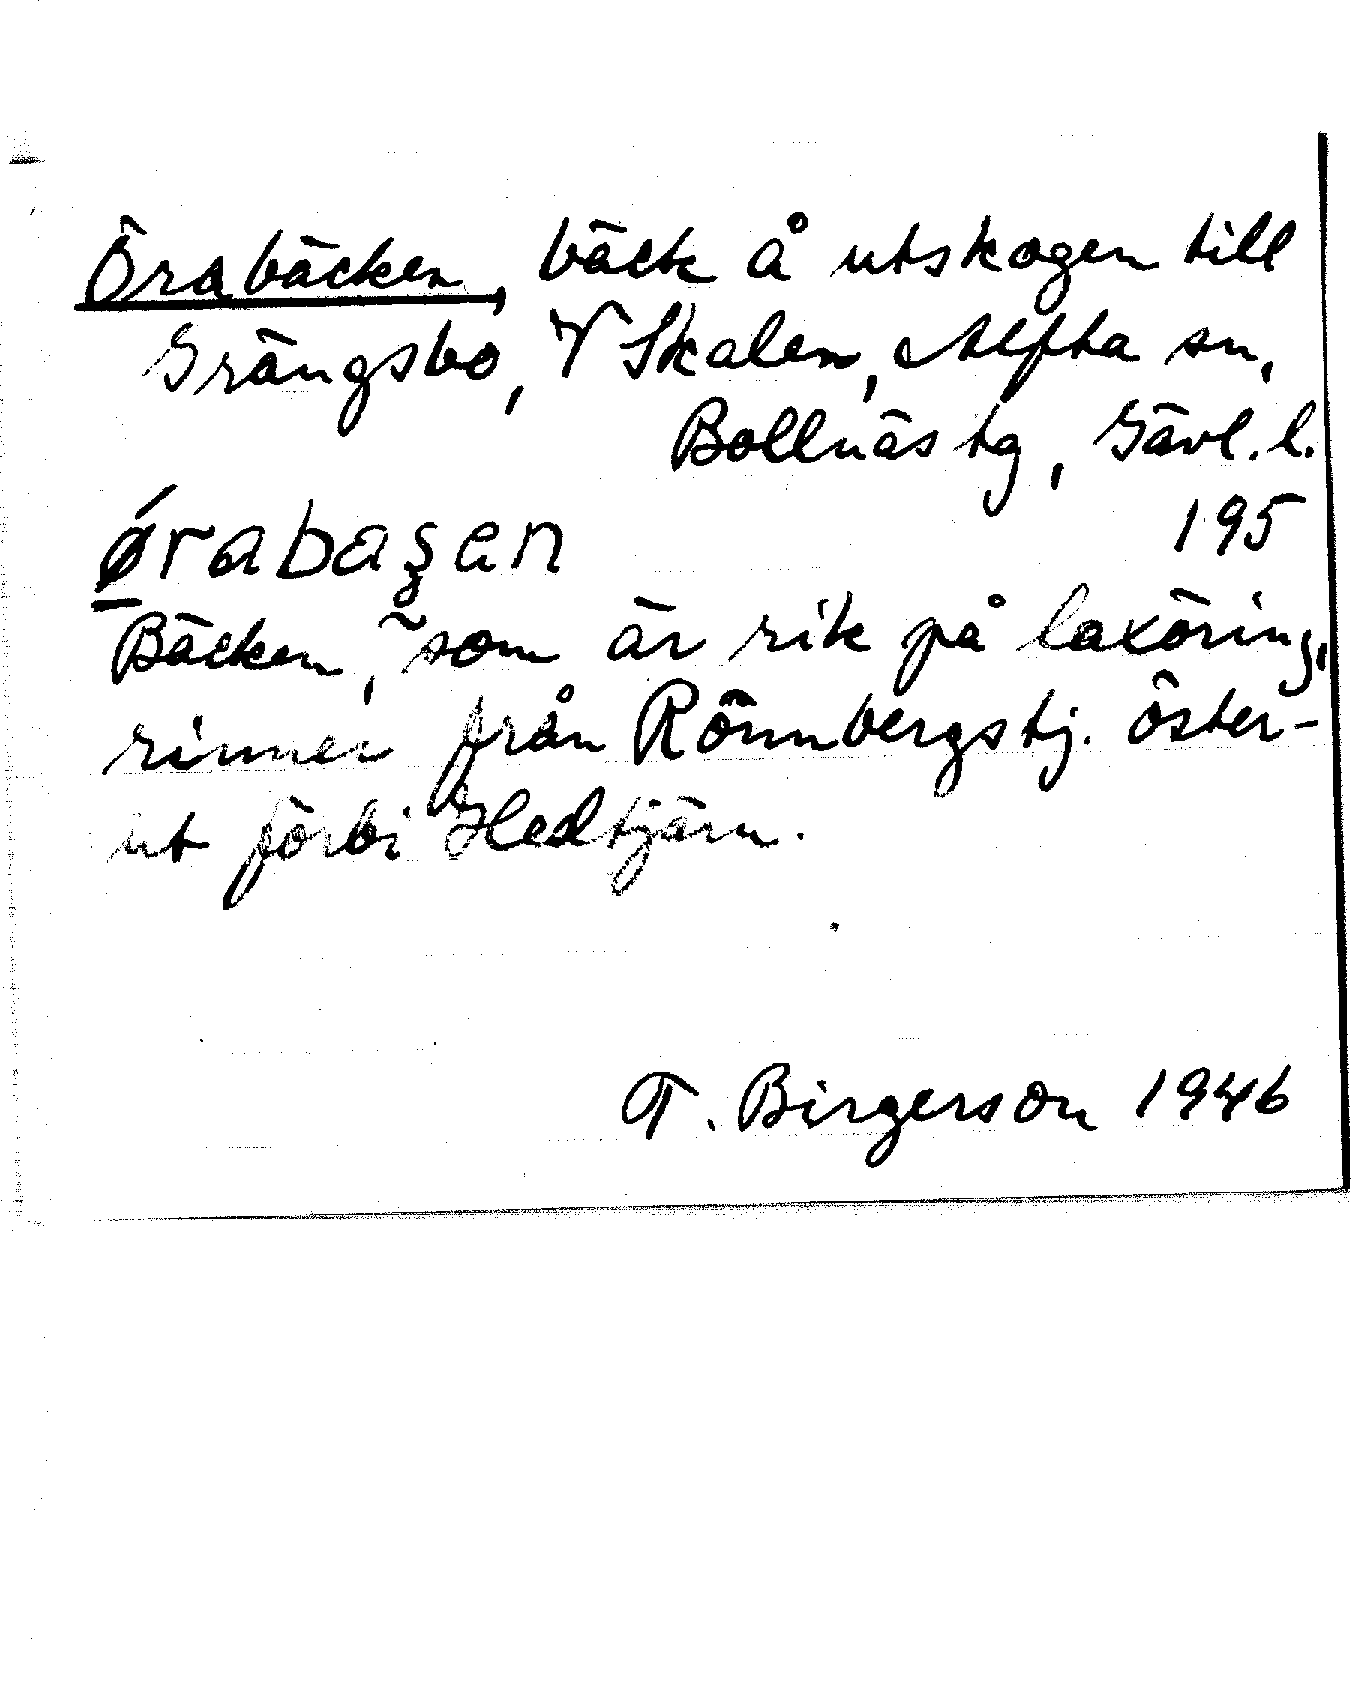 Örabäcken, bäck å utskogen till
Grängsbo, V Skalen, Alfta sn,
Bollnäs tg, Gävl. l.
195
Bäcken, som är rik på laxöring,
rinner från Rönnbergstj. öster-
ut förbi Hedtjärn.
T. Birgerson 1946